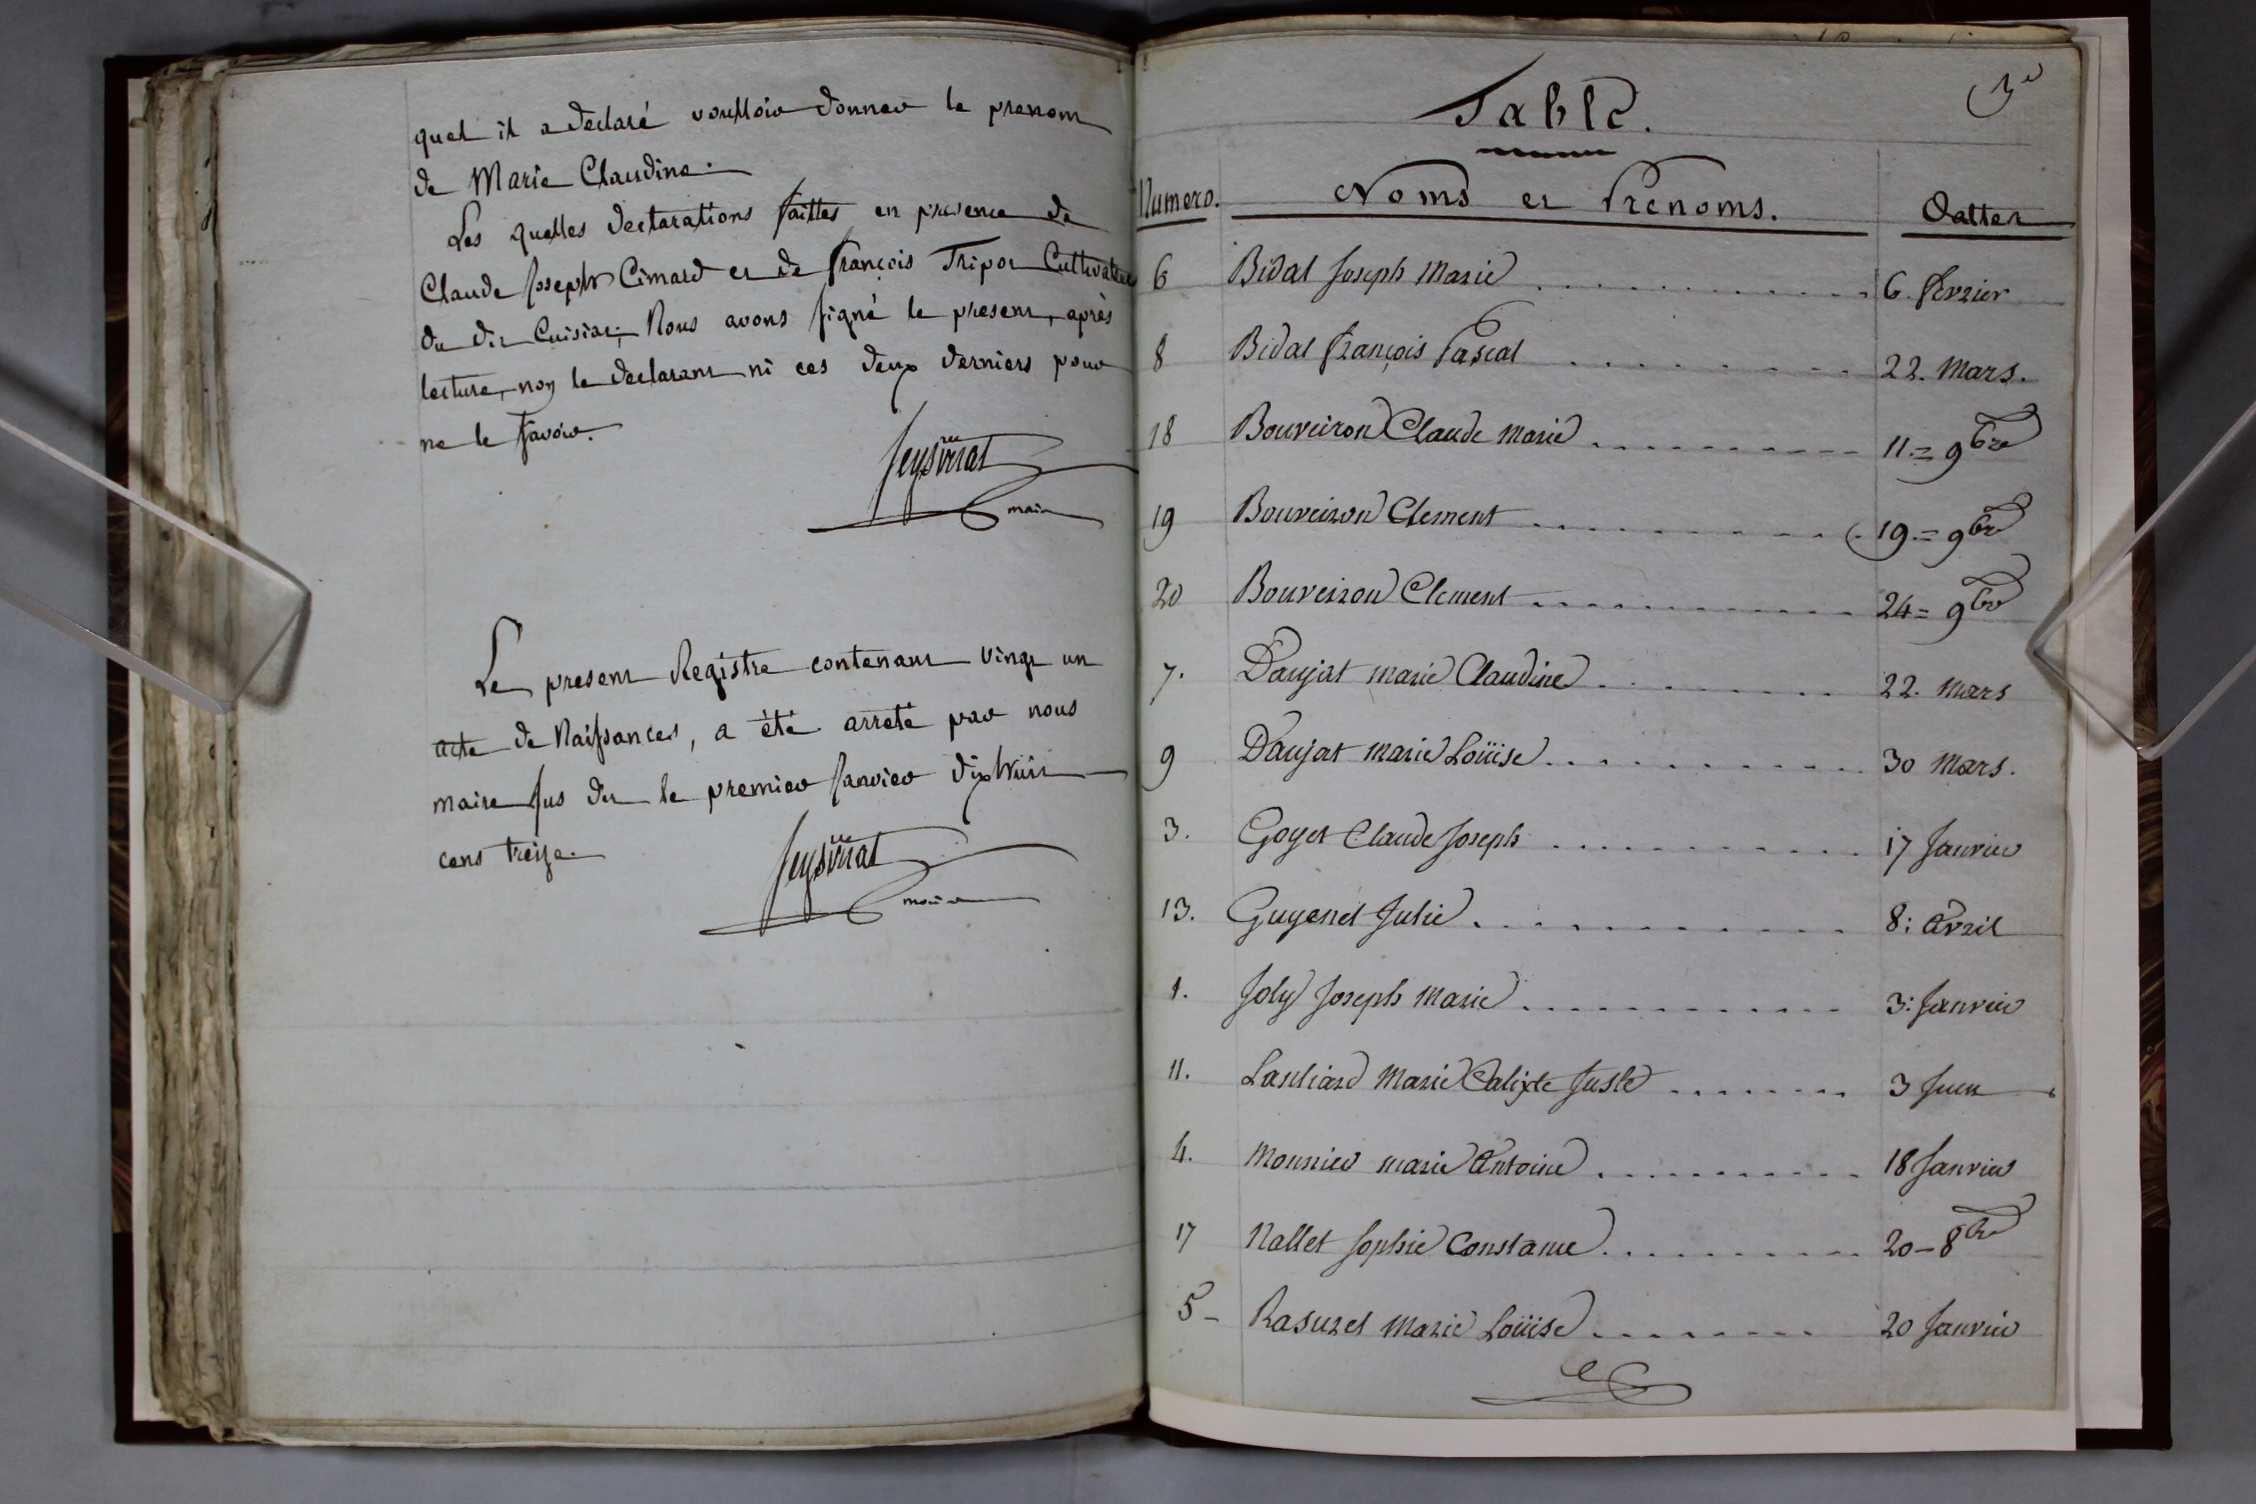 quel il a declaré voulloir donner le prenom
de Marie Claudine.
Les quelles declarations faittes en presence de
Claude Joseph Cimard et de françois Tripoz Cultivateur
du dit Cuisiat; Nous avons signé le present, après
lecture, non le declarant ni ces deux derniers pour
ne le savoir.
maire
Le present Registre contenant vingt un
acte de Naissances, a été arreté par nous
maire sus dit le premier Janvier dix huit
cens treize.
maire
Table.
Numero. Noms et Prenoms. Dattes
6 Bidat Joseph Marie 6. fevrier
8 Bidat François Pascal 22. Mars.
18 Bouveiron Claude Marie 11.= 9bre
19 Bouveiron Clement 19.= 9bre
20 Bouveiron Clement 24= 9bre
7. Daujat marie Claudine 22. mars
9 Daujat marie Loüise 30 Mars.
3. Goyet Claude Joseph 17 Janvier
13. Guyenet Julie 8: Avril
1. Joly Joseph Marie 3: Janvier
11. Marie Calixte Juste 3 Juin
4. Monnier marie Antoine 18 Janvier
17 Nallet Sophie Constance 20-8bre
5- Rasurel Marie Loüise 20 Janvier